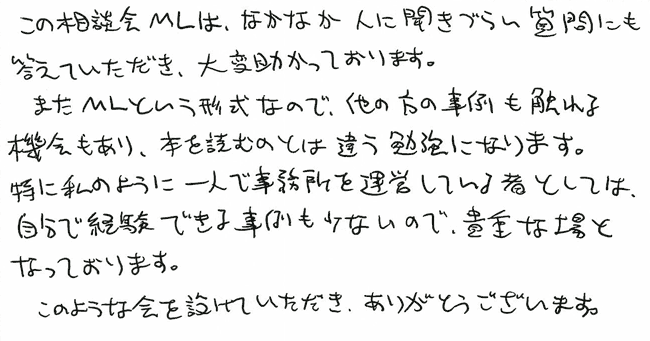 この相談会MLは、なかなか人に聞きづらい質問にも
答えていただき、大変助かっております。
またMLという形式なので、他の方の事例も触れる
機会もあり、本を読むのとは違う勉強になります。
特に私のように一人で事務所を運営している者としては、
自分で経験できる事例も少ないので、貴重な場と
なっております。
このような会を設けていただき、ありがとうございます。